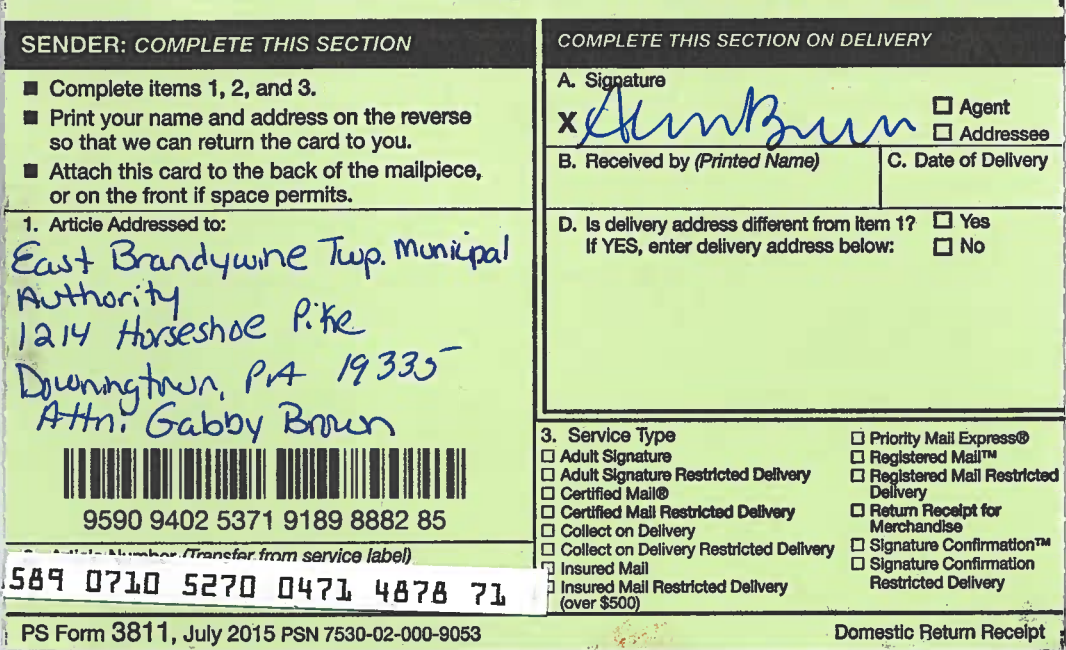 SENDER: COMPLETE THIS SECTION
■ Complete items 1, 2, and 3.
■ Print your name and address on the reverse
so that we can return the card to you.
■ Attach this card to the back of the mailpiece,
or on the front if space permits.
1. Article Addressed to:
East Brandywine Twp. Municipal
Authority
1214 Horseshoe Pike
Downingtown, PA 19335
Attn: Gabby Brown
9590 9402 5371 9189 8882 85
Article Number (Transfer from service label)
589 0710 5270 0471 4878 71
COMPLETE THIS SECTION ON DELIVERY
A. Signature
X
☐ Agent
☐ Addressee
B. Received by (Printed Name)
C. Date of Delivery
D. Is delivery address different from item 1? ☐ Yes
If YES, enter delivery address below: ☐ No
3. Service Type
☐ Adult Signature
☐ Adult Signature Restricted Delivery
☐ Certified Mail®
☐ Certified Mail Restricted Delivery
☐ Collect on Delivery
☐ Collect on Delivery Restricted Delivery
☐ Insured Mail
☐ Insured Mail Restricted Delivery
(over $500)
☐ Priority Mail Express®
☐ Registered Mail™
☐ Registered Mail Restricted
Delivery
☐ Return Receipt for
Merchandise
☐ Signature Confirmation™
☐ Signature Confirmation
Restricted Delivery
PS Form 3811, July 2015 PSN 7530-02-000-9053
Domestic Return Receipt